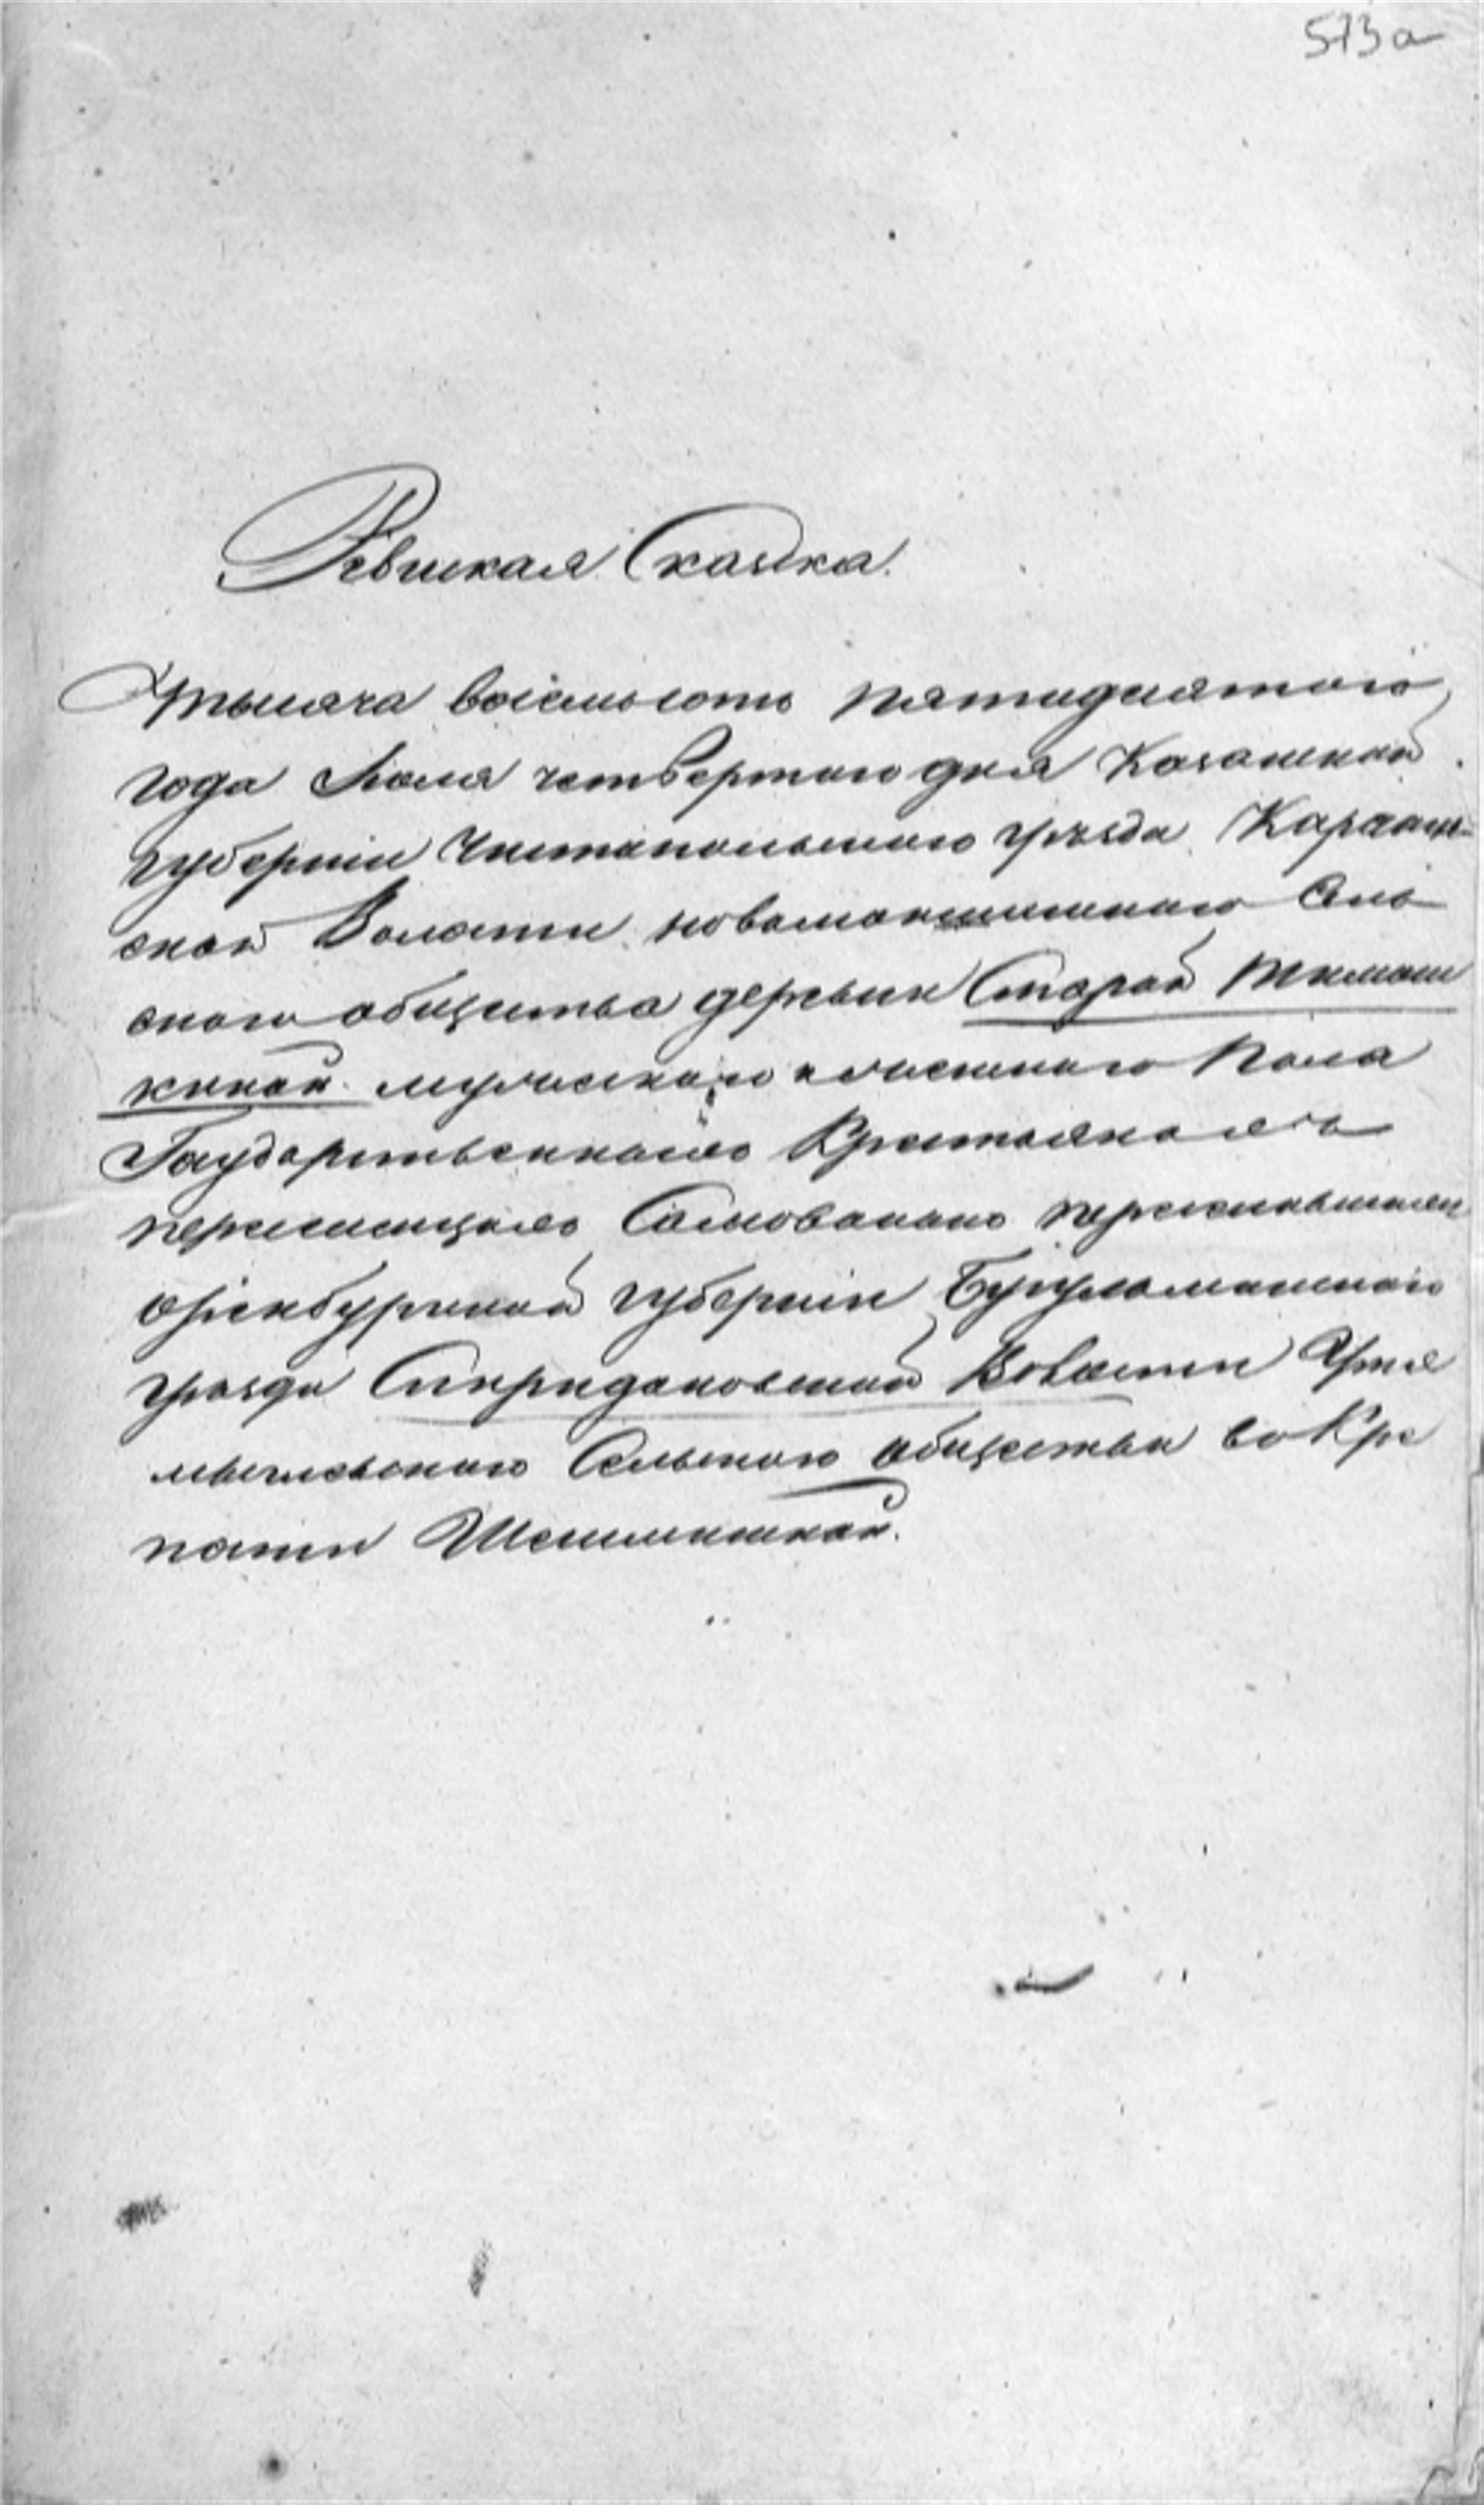 573а
Ревиская Сказка.
Тысяча восемьсотъ пятидесятого
года Июля четвертаго дня Казанской
губерніи Чистопольскаго уѣзда
ской Волости Сель
скаго общества деревни Старой Тимош
киной мужескаго и женскаго пола
Государственнымъ Крестьянамъ
переселенцамъ Самовольно переселившимся
Оренбургской губерніи Бугульминскаго
уѣзда Спиридоновской Волости
Сельскаго общества во Кре
пости Шешминской.